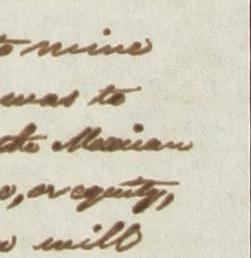 to mine
was to
the Mexican
or equity,
will